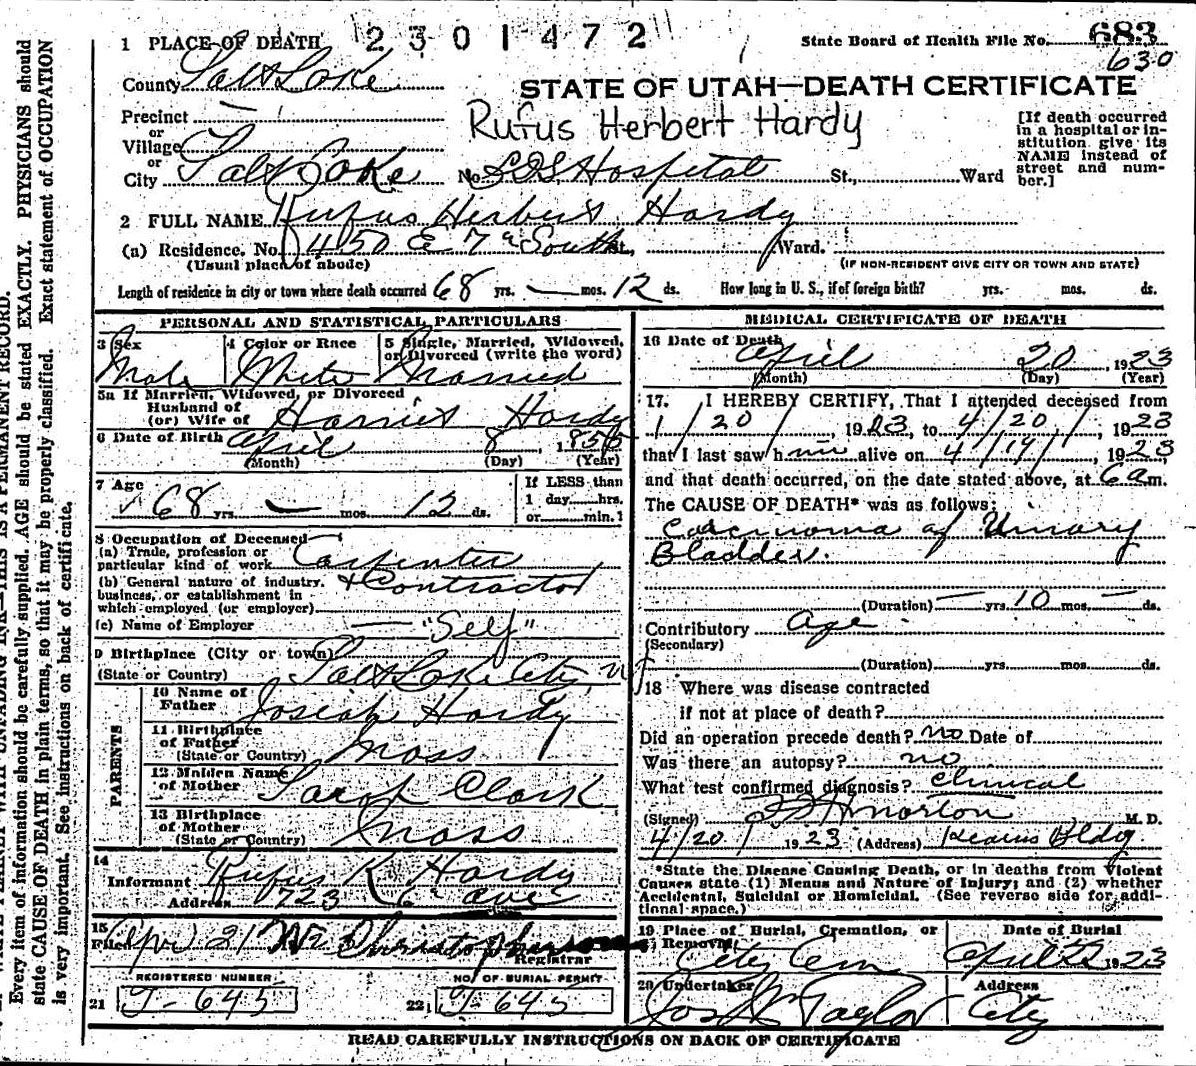 2301472
State Board of Health File No. 683
630
1 PLACE OF DEATH
County Salt Lake
STATE OF UTAH—DEATH CERTIFICATE
Precinct —
or
Village
or
City Salt Lake No. LDS Hospital St., Ward
Rufus Herbert Hardy
[If death occurred
in a hospital or in-
stitution give its
NAME instead of
street and num-
ber.]
2 FULL NAME Rufus Herbert Hardy
(a) Residence, No. 450 E 7th South St., Ward.
(Usual place of abode) (IF NON-RESIDENT GIVE CITY OR TOWN AND STATE)
Length of residence in city or town where death occurred 68 yrs. — mos. 12 ds. How long in U. S., if of foreign birth? yrs. mos. ds.
PERSONAL AND STATISTICAL PARTICULARS
3 Sex 4 Color or Race 5 Single, Married, Widowed,
or Divorced (write the word)
Male White Married
5a If Married, Widowed, or Divorced
Husband of
(or) Wife of Harriet Hardy
6 Date of Birth April 8, 1855
(Month) (Day) (Year)
7 Age If LESS than
68 yrs. — mos. 12 ds. 1 day hrs.
or min.
8 Occupation of Deceased
(a) Trade, profession or
particular kind of work Carpenter
(b) General nature of industry,
business, or establishment in
which employed (or employer) + Contractor
(c) Name of Employer — "Self"
9 Birthplace (City or town)
(State or Country) Salt Lake City, Ut
PARENTS
10 Name of
Father Josiah Hardy
11 Birthplace
of Father
(State or Country) Mass
12 Maiden Name
of Mother Sarah Clark
13 Birthplace
of Mother
(State or Country) Mass
14
Informant Rufus K Hardy
Address 723 6th Ave
15
Filed Apr 21 Christopherson
Registrar
REGISTERED NUMBER NO. OF BURIAL PERMIT
21 J-645 22 J-645
MEDICAL CERTIFICATE OF DEATH
16 Date of Death
April 20, 1923
(Month) (Day) (Year)
17. I HEREBY CERTIFY, That I attended deceased from
1/20/, 1923, to 4/20/, 1923
that I last saw him alive on 4/19/, 1923
and that death occurred, on the date stated above, at 6 a m.
The CAUSE OF DEATH* was as follows:
Carcinoma of Urinary
Bladder.
(Duration) — yrs. 10 mos. — ds.
Contributory Age
(Secondary)
(Duration) yrs. mos. ds.
18 Where was disease contracted
if not at place of death?
Did an operation precede death? No Date of
Was there an autopsy? no
What test confirmed diagnosis? Clinical
(Signed) Morton M. D.
4/20/ 1923 (Address) Kearns Bldg
*State the Disease Causing Death, or in deaths from Violent
Causes state (1) Menus and Nature of Injury; and (2) whether
Accidental, Suicidal or Homicidal. (See reverse side for addi-
tional space.)
19 Place of Burial, Cremation, or Date of Burial
Removal
City Cem April 22 1923
20 Undertaker Address
Jos Wm Taylor City
READ CAREFULLY INSTRUCTIONS ON BACK OF CERTIFICATE
THIS IS A PERMANENT RECORD.
Every item of information should be carefully supplied. AGE should be stated EXACTLY. PHYSICIANS should
state CAUSE OF DEATH in plain terms, so that it may be properly classified. Exact statement of OCCUPATION
is very important. See instructions on back of certificate.